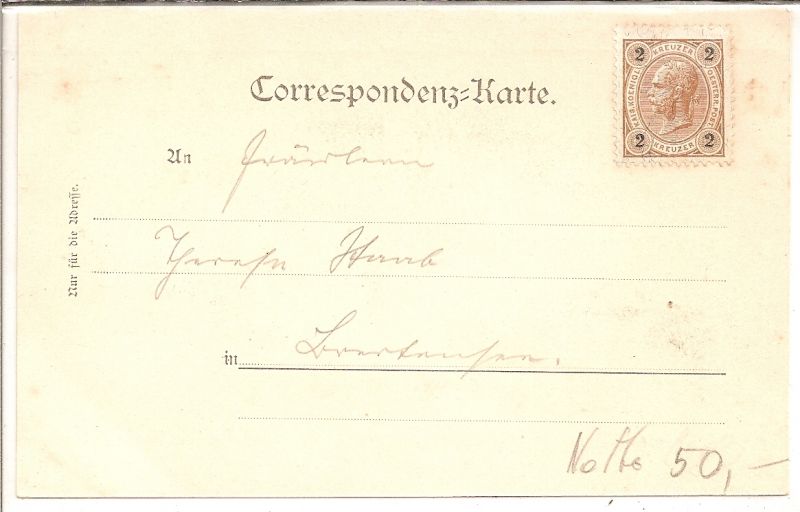 2 KREUZER 2
KAIS. KOENIGL. OESTERR. POST
2 KREUZER 2
Correspondenz-Karte.
An Fräulein
Nur für die Adresse.
Therese Staab
in Breitensee.
50,-